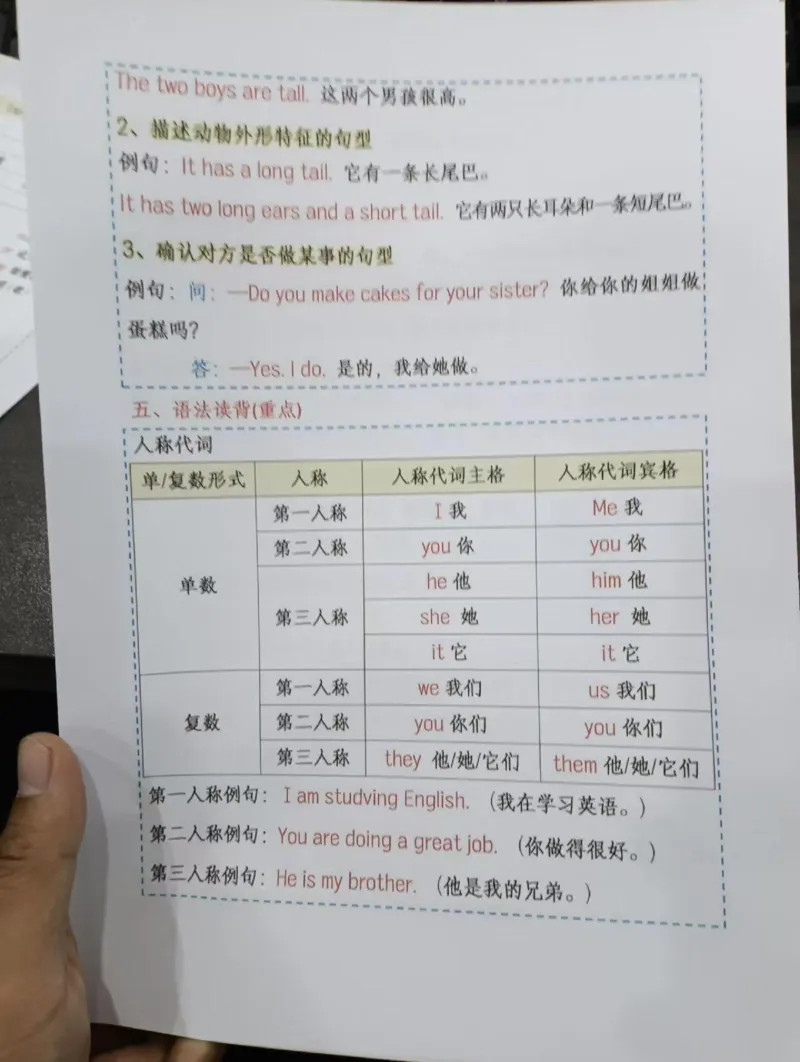 The two boys are tall. 这两个男孩很高。
2、描述动物外形特征的句型
例句：It has a long tail. 它有一条长尾巴。
It has two long ears and a short tail. 它有两只长耳朵和一条短尾巴。
3、确认对方是否做某事的句型
例句：问：—Do you make cakes for your sister? 你给你的姐姐做
蛋糕吗?
答：—Yes. I do. 是的，我给她做。
五、语法读背(重点)
人称代词
单/复数形式 人称 人称代词主格 人称代词宾格
第一人称 I 我 Me 我
第二人称 you 你 you 你
he 他 him 他
单数 第三人称 she 她 her 她
it 它 it 它
第一人称 we 我们 us 我们
复数 第二人称 you 你们 you 你们
第三人称 they 他/她/它们 them 他/她/它们
第一人称例句：I am studying English.（我在学习英语。）
第二人称例句：You are doing a great job.（你做得很好。）
第三人称例句：He is my brother.（他是我的兄弟。）